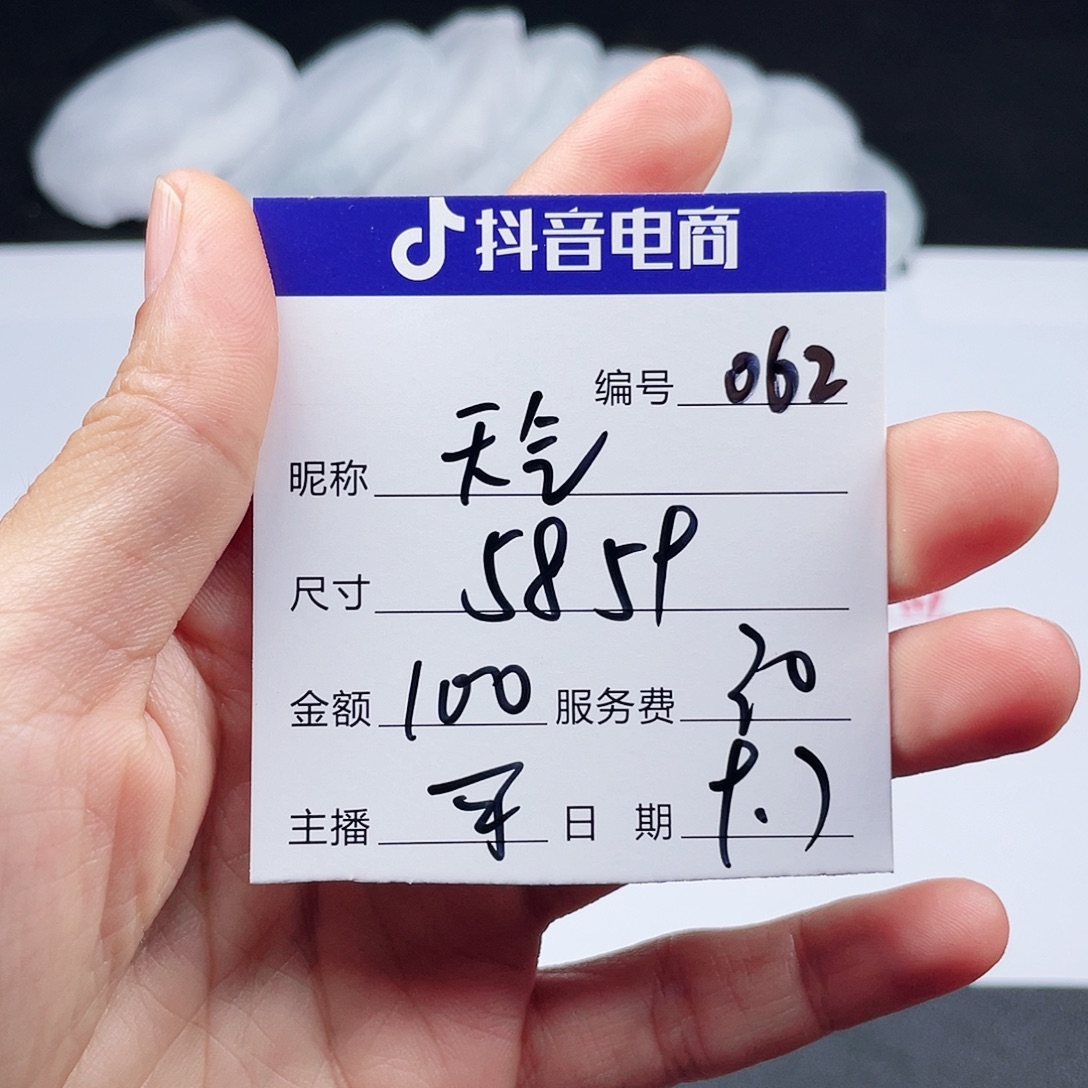 抖音电商
编号 062
昵称 天气
尺寸 58 59
金额 100 服务费 20
主播 日期